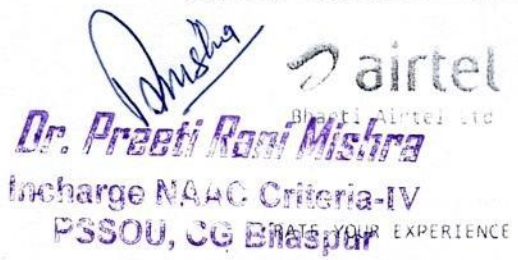 airtel
Bharti Airtel Ltd
Dr. Preeti Rani Mishra
Incharge NAAC Criteria-IV
PSSOU, CG Bilaspur
RATE YOUR EXPERIENCE